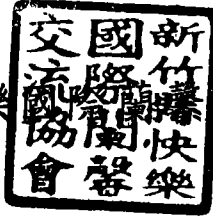 新竹快樂
國際蘭馨
交流協會